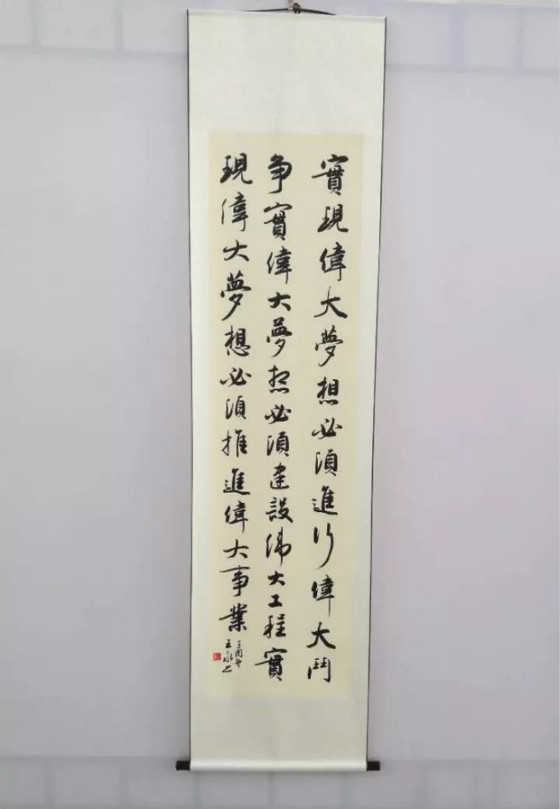 實現偉大夢想必須進行偉大鬥
争實偉大夢想必須建設偉大工程實
現偉大夢想必須推進偉大事業
丁酉年